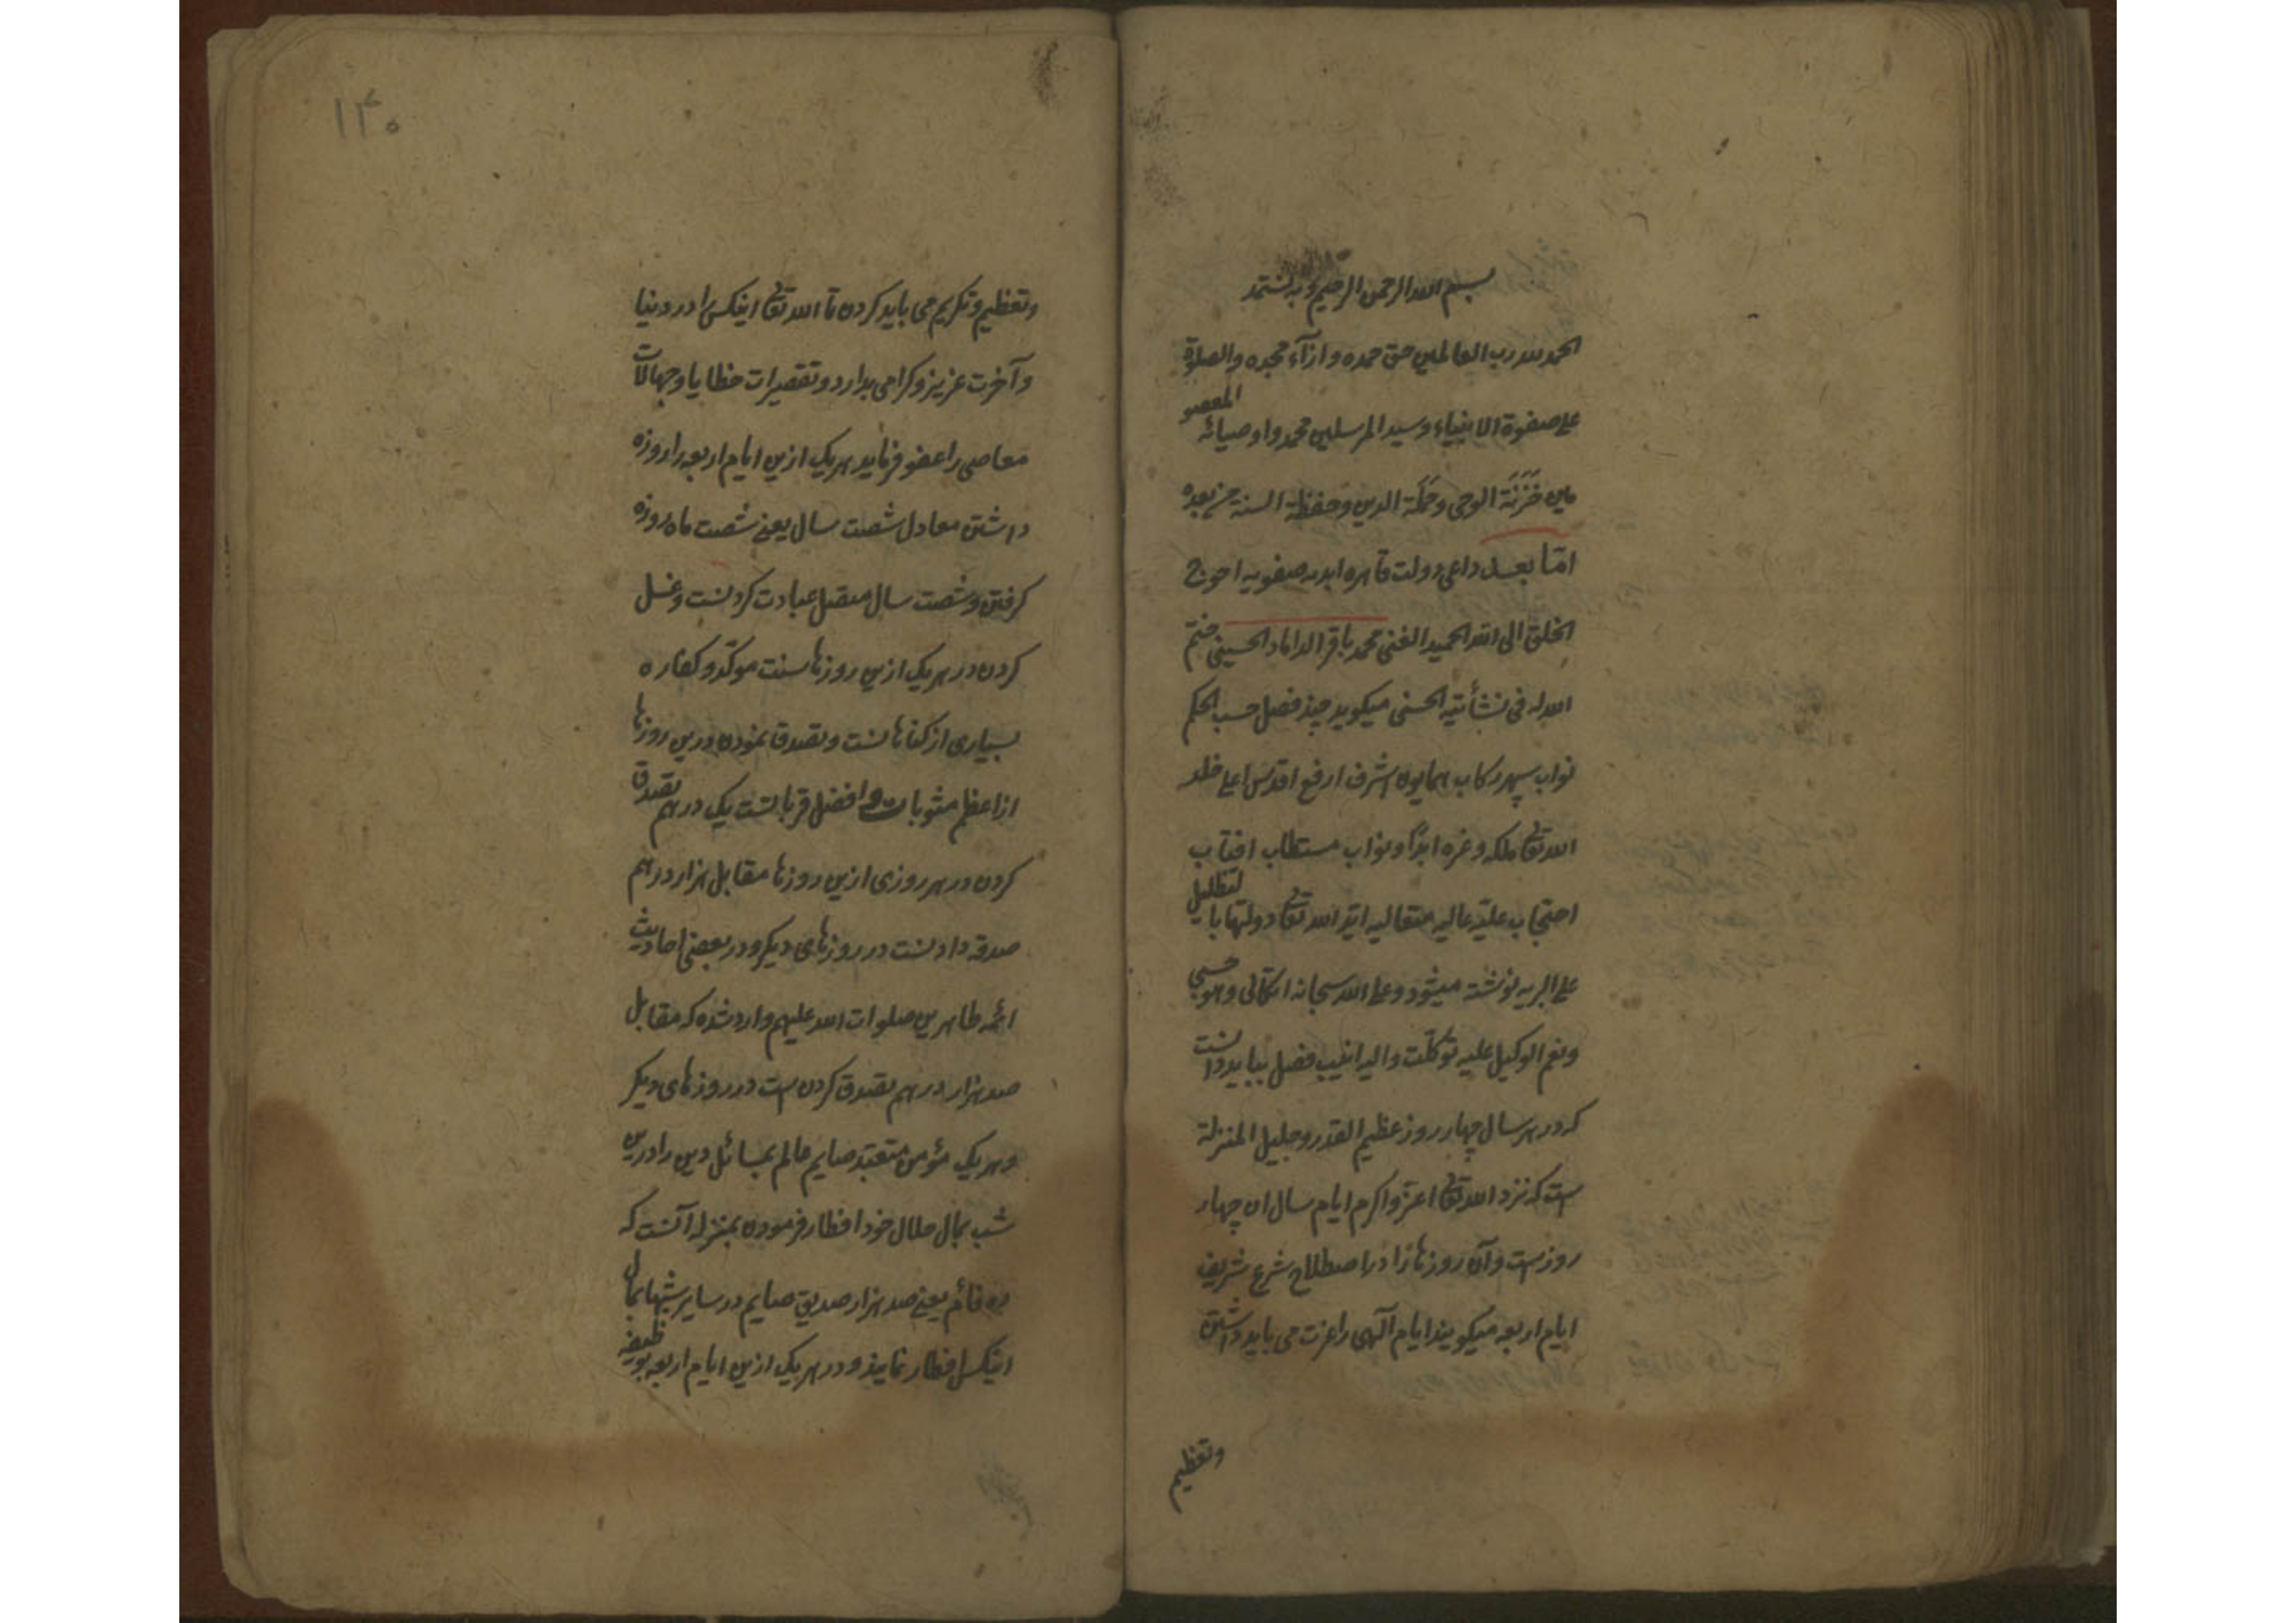 بسم الله الرحمن الرحیم و به نستمد
الحمد لله رب العالمین حق حمده و ازآء مجده والصلوة
علی صفوة الانبیاء و سید المرسلین محمد و اوصیائه المعصو
مین خَزَنَة الوحی و حَمَلَة الدین و حفظة السنة من بعده
امّا بعد داعی دولت قاهره ابدیه صفویه احوج
الخلق الی الله الحمید الغنی محمد باقر الداماد الحسینی ختم
الله له فی نشأتیه الحسنی میکوید چند فصل حسب الحکم
نواب سپهر رکاب همایون اشرف ارفع اقدس اعلی خلد
الله تعالی ملکه و عزه ابدًا و نواب مستطاب افتاب
احتجاب علیّه عالیه متعالیه ایّد الله تعالی دولتها با لتظلیل
علی البریه نوشته میشود و علی الله سبحانه اتکالی و هو حسبی
و نعم الوکیل علیه توکلّت و الیه انیب فصل بباید دانست
که در هر سال چهار روز عظیم القدر و جلیل المنزلة
است که نزد الله تعالی اعزّ و اکرم ایام سال ان چهار
روز است و آن روزها را در اصطلاح شرع شریف
ایام اربعه میکویند ایام آلهی را عزت می باید داشتن
و تعظیم
۱۳۰
و تعظیم و تکریم می باید کردن تا الله تعالی اینکس را در دنیا
و آخرت عزیز و کرامی بدارد و تقصیرات خطایا و جهالات
معاصی را عفو فرماید هر یک ازین ایام اربعه را روزه
داشتن معادل شصت سال یعنی شصت ماه روزه
کرفتن و شصت سال متصل عبادت کردنست و غسل
کردن در هر یک ازین روزها سنت موکّد و کفاره
بسیاری از کناهانست و تصدق نمودن درین روزها
از اعظم مثوبات و افضل قرباتست یک درهم تصدق
کردن در هر روزی ازین روزها مقابل هزار درهم
صدقه دادنست در روزهای دیکر و در بعضی احادیث
ائمه طاهرین صلوات الله علیهم وارد شده که مقابل
صد هزار درهم تصدق کردن است در روزهای دیکر
و هر یک مؤمن متعبّد صایم عالم بمسائل دین را درین
شب بمال حلال خود افطار فرمودن بمنزله آنست که
ده فائم یعنی صد هزار صدیق صایم در سایر شبها بمال
اینکس افطار نمایند و در هر یک ازین ایام اربعه بوظیفه